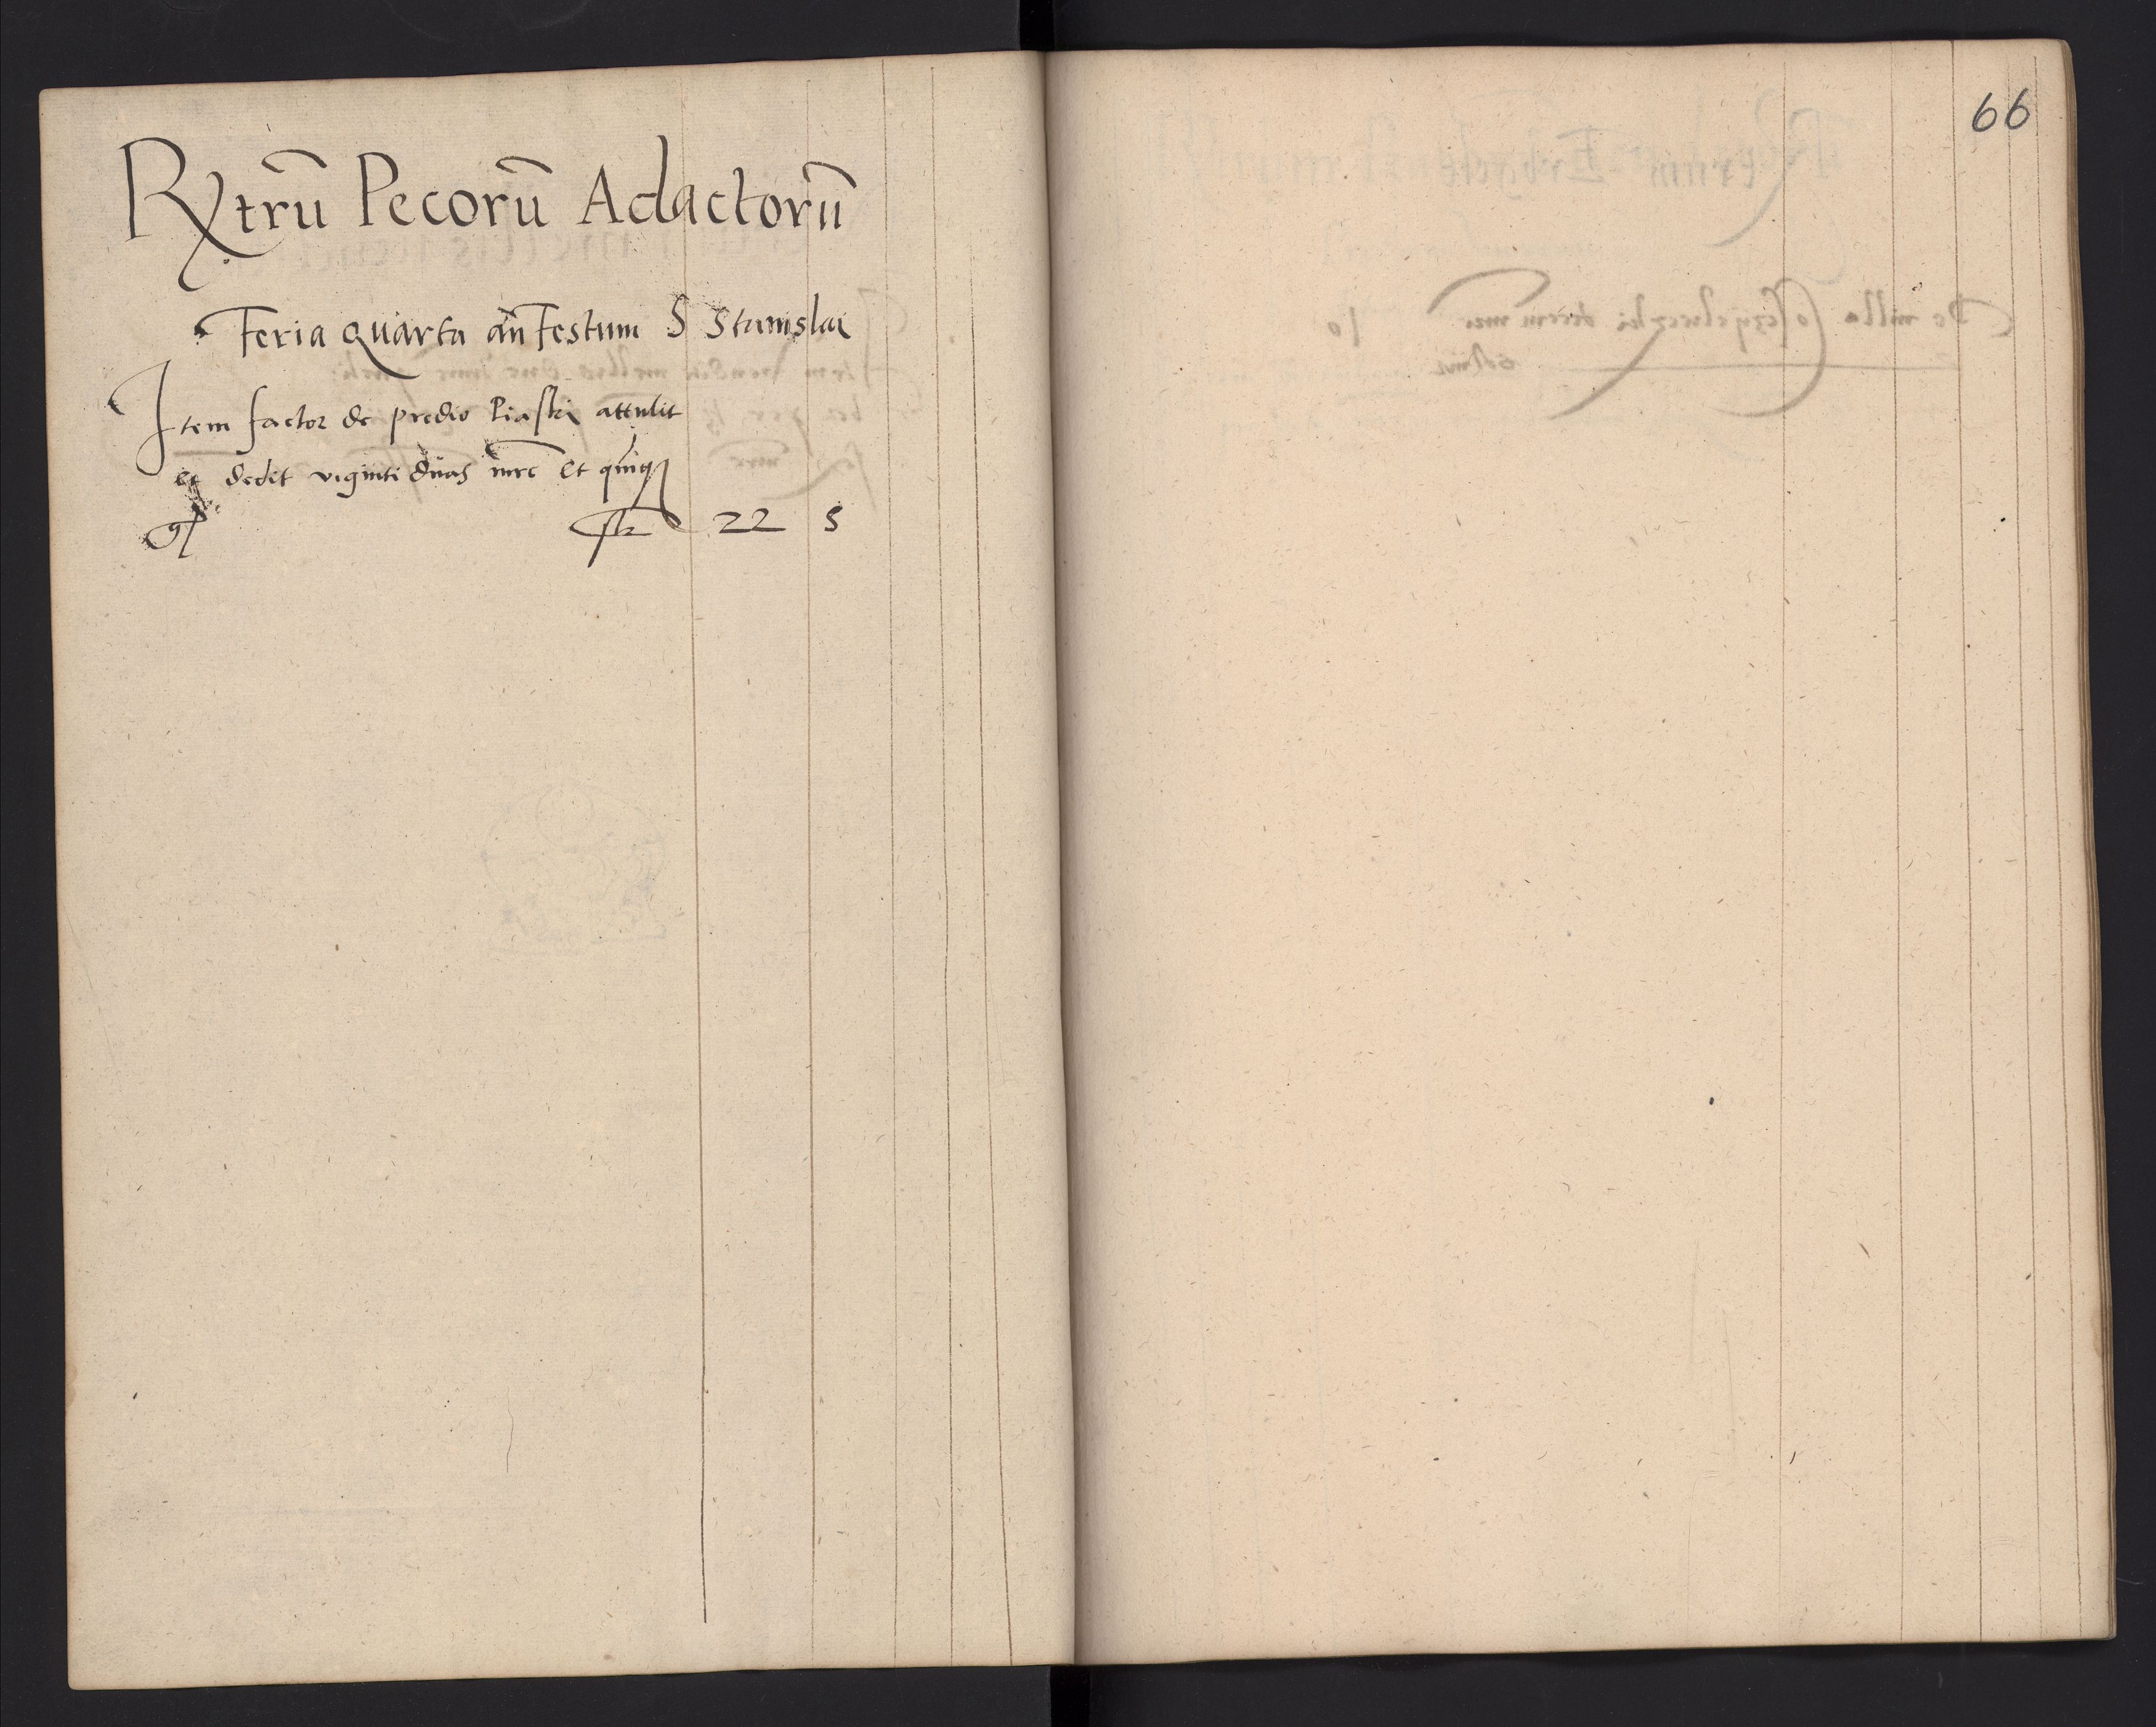 Rxtrū Pecorū Adactorū
Feria quarta añ Festum S Stanislai
Item factor de predio Piaski attulit
et dedit viginti duas mrc et quinqꝫ
gͬ 22 5
66